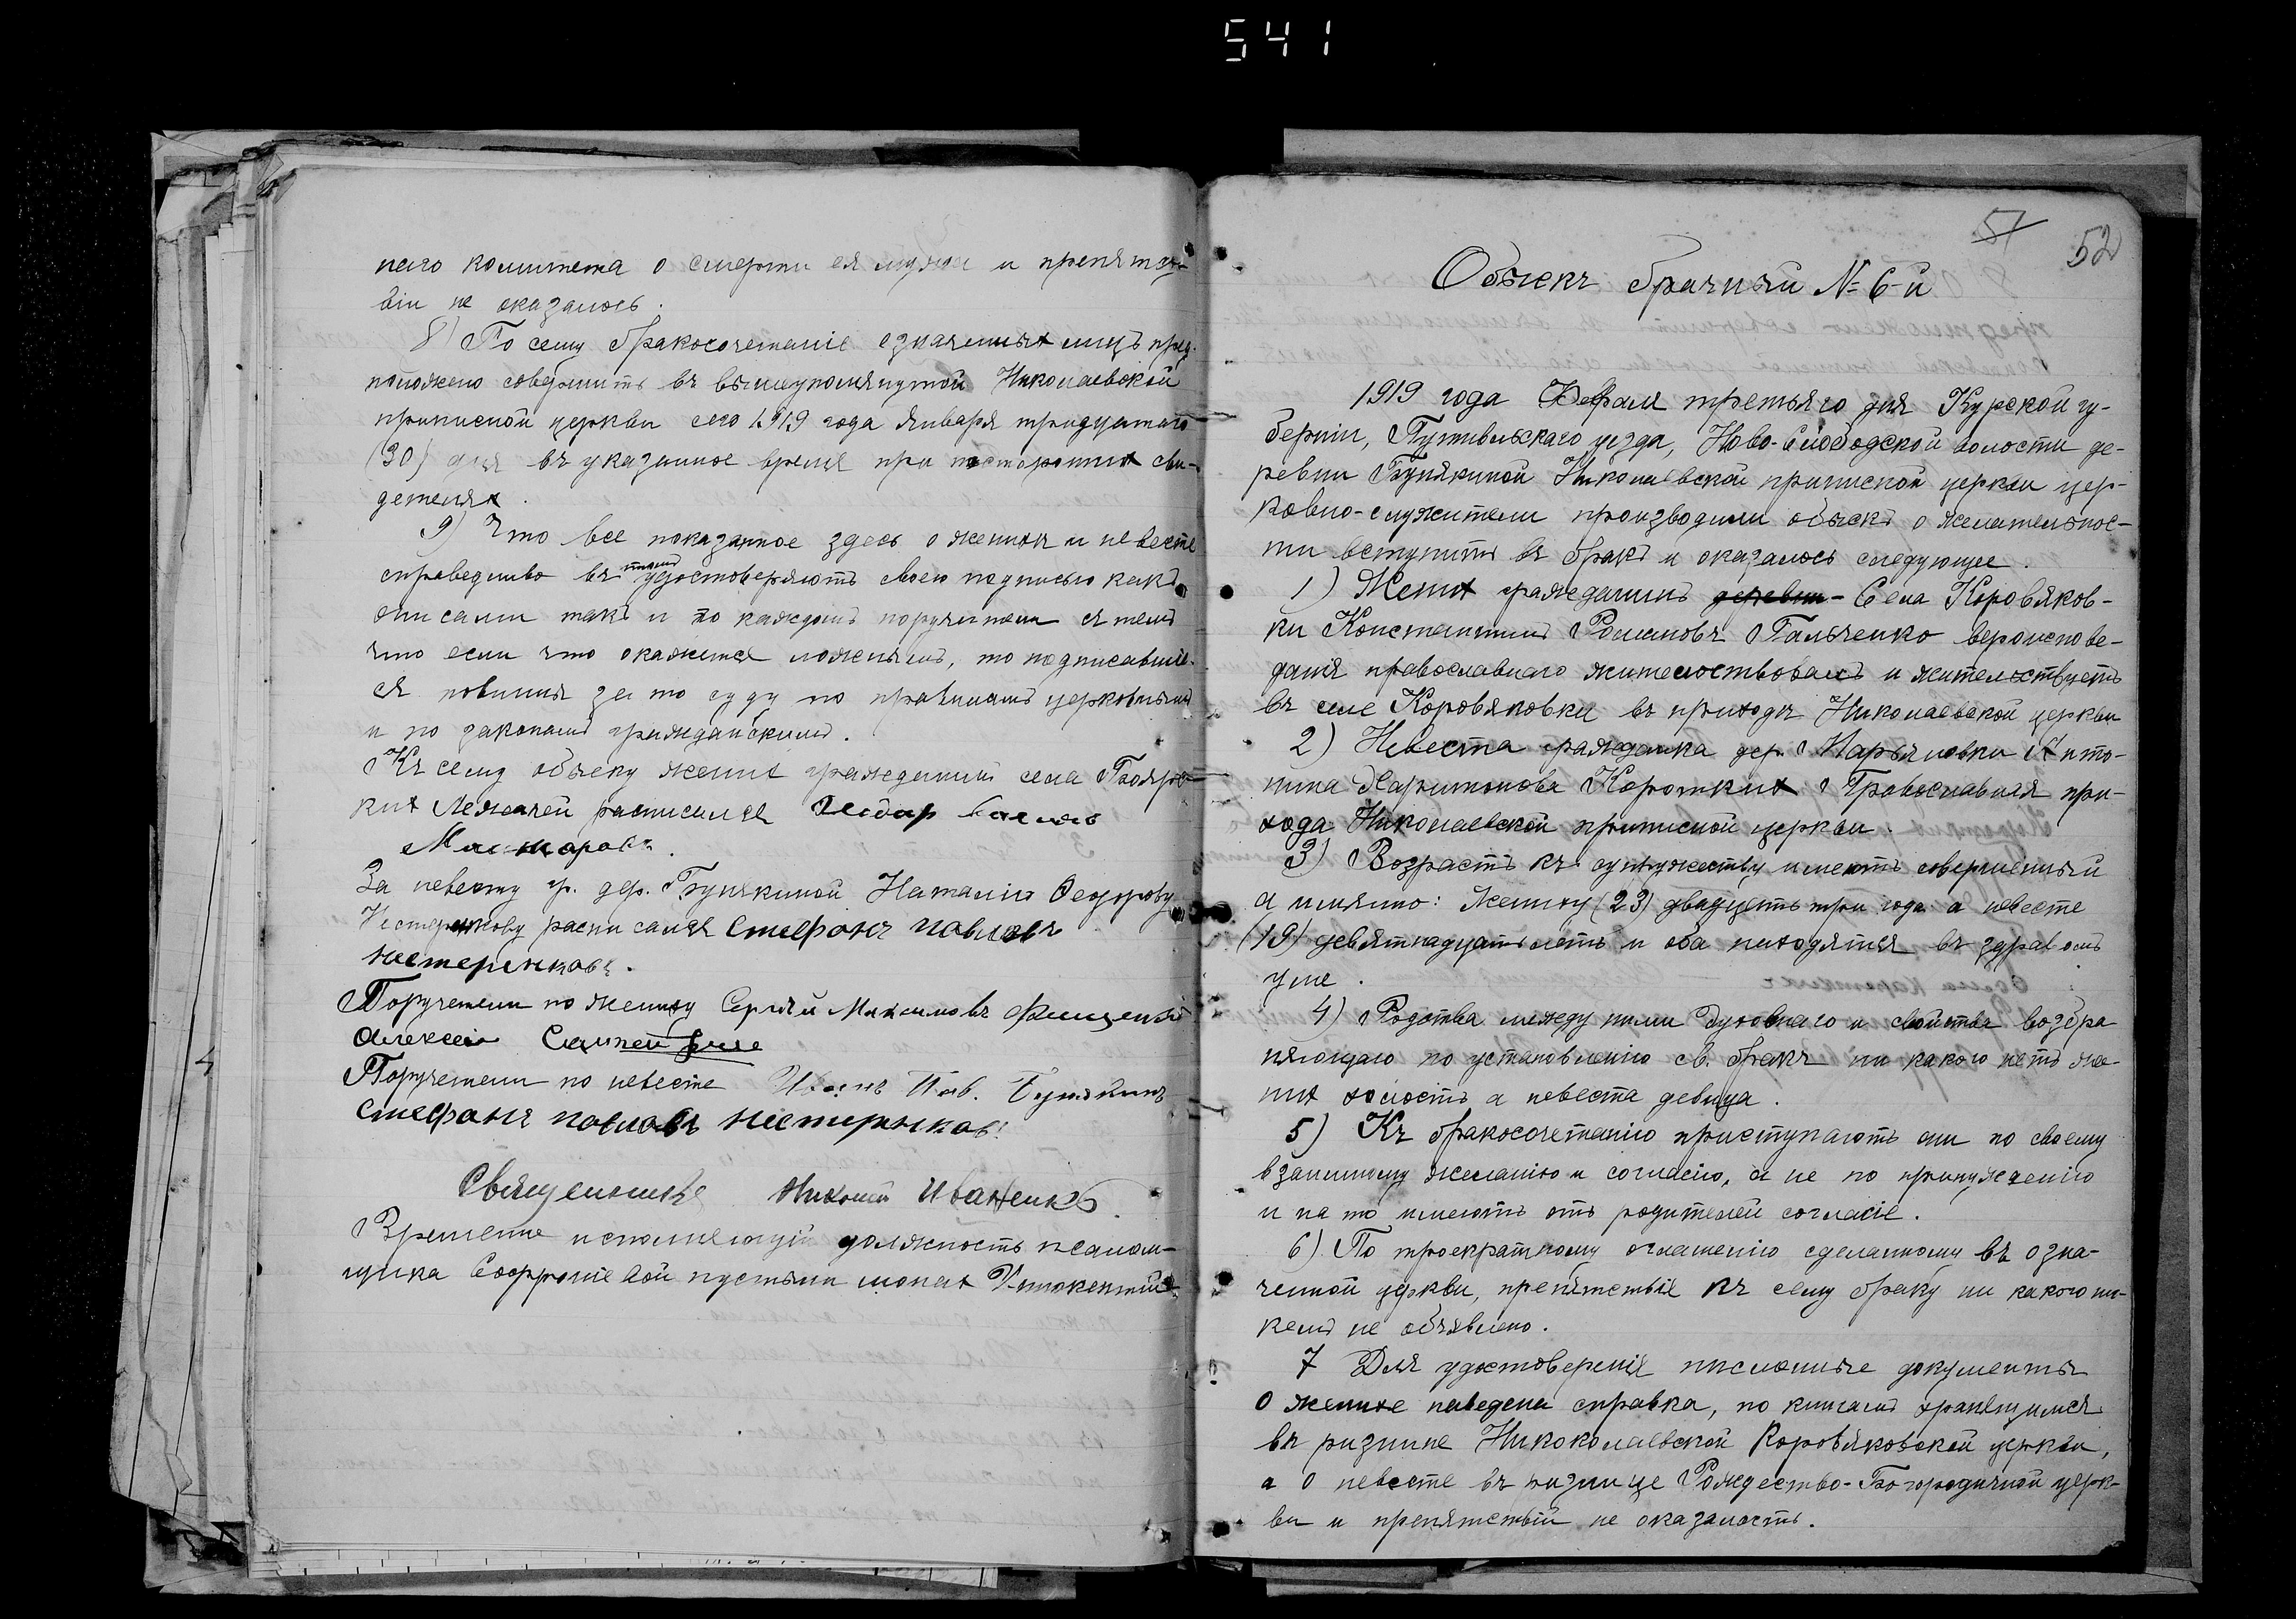 541
наго комитета о смерти ея мужа и препятст-
віи не оказалось.
8) По сему бракосочетаніе означенных лицъ пред-
положено совершить въ вышеупомянутой Николаевской
приписной церкви сего 1919 года Января тридцатаго
(30) дня въ указанное время при посторонних сви-
детелях.
9) Что все показанное здесь о женихѣ и невесте
справедливо въ томъ удостоверяютъ своею подписью какъ
они сами такъ и по каждомъ поручители съ темъ
что если что окажется ложнымъ, то подписавшіе-
ся повинны за то суду по правиламъ церковнымъ
и по законамъ гражданскимъ.
Къ сему обыску жених гражданинъ села Бояро-
ких Лежачей расписался
За невесту гр. дер. Бунякиной Наталію Феодорову
Нестеренкову расписался Стефанъ павловъ
нестеренковъ.
Поручители по жениху Сергѣй Максимовъ
Алексей
Поручители по невесте Иванъ Пав. Бунякинъ
Стефанъ павловъ нестеренковъ
Священникъ Николай Иваненко
Временно исполняющій должность псалом-
щика Софроніевой пустыни монах Иннокентій
51
52
Обыскъ брачный № 6-й
1919 года Февраля третьяго дня Курской гу-
берніи, Путивльскаго уезда, Ново-Слободской волости де-
ревни Бунякиной Николаевской приписной церкви цер-
ковно-служители производили обыскъ о желательнос-
ти вступить въ бракъ и оказалось следующее.
1) Жених гражданинъ деревни - Села Коровяков-
ки Константинъ Романовъ Гальченко вероиспове-
данія православнаго жительствовалъ и жительствуетъ
въ селе Коровяковки въ приходѣ Николаевской церкви
2) Невеста гражданка дер. Марьяновки Анто-
нина Харитонова Коротких Православная при-
хода Николаевской приписной церкви.
3) Возрастъ къ супружеству имеютъ совершенный
а имянно: Жениху (23) двадцеть три года а невесте
(19) девятнадцать летъ и оба находятся въ здравомъ
уме.
4) Родства между ними духовнаго и свойства возбра-
няющаго по установленію св. бракъ ни какого нетъ же-
них холостъ а невеста девица.
5) Къ бракосочетанію приступаютъ они по своему
взаимному желанію и согласію, а не по принужденію
и на то имеютъ отъ родителей согласіе.
6) По троекратному оглашенію сделанному въ озна-
ченной церкви, препятствіе къ сему браку ни какого ни-
кемъ не объявлено.
7 Для удостоверенія писменные документы
о женихе наведена справка, по книгамъ хранящимся
въ ризнице Никоколаевской Коровяковской церкви,
а о невесте въ ризнице Рождество-Богородичной церк-
ви и препятствій не оказалость.